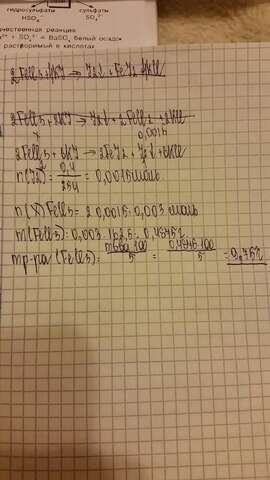 гидросульфаты сульфаты
HSO₄⁻ SO₄²⁻
чественная реакция
²⁺ + SO₄²⁻ = BaSO₄ белый осадок
растворимый в кислотах
2FeCl3 + 2KJ → J2↓ + 2FeCl2 + 2KCl
x 0,0015
2FeCl3 + 6KJ → 2FeJ2 + J2↓ + 6KCl
n(J2) = 0,4/254 = 0,0015моль
n(X)FeCl3 = 2·0,0015=0,003 моль
m(FeCl3)=0,003·162,5=0,4875г
mр-ра(FeCl3)= mбва·100/5 = 0,4875·100/5 = 9,75г